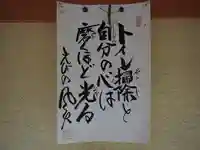 トイレ掃除と
自分の心は
磨くほど光る